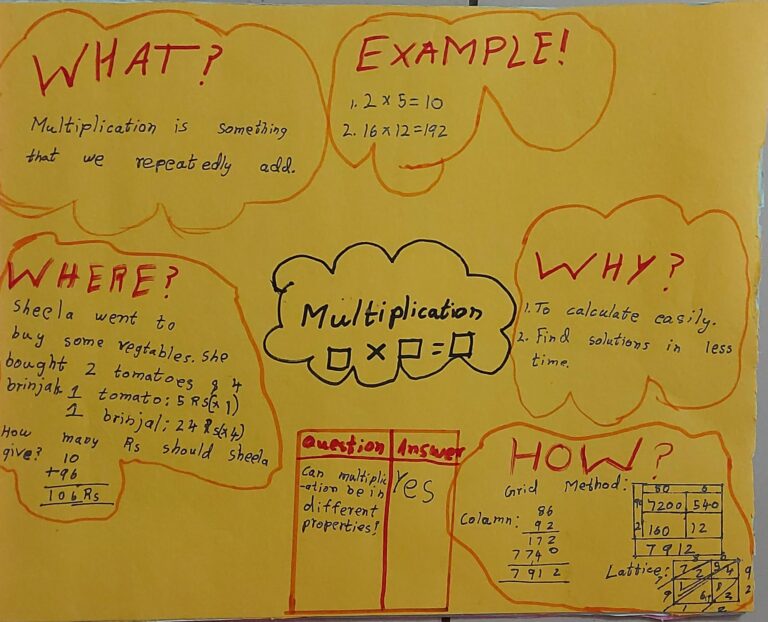 WHAT?
Multiplication is something
that we repeatedly add.
EXAMPLE!
1. 2 x 5 = 10
2. 16 x 12 = 192
WHERE?
Sheela went to
buy some vegtables. She
bought 2 tomatoes & 4
brinjal. 1 tomato: 5 Rs
1 brinjal: 24 Rs(x4)
How many Rs should Sheela
give? 10
+96
106 Rs
Multiplication
□ x □ = □
WHY?
1. To calculate easily.
2. Find solutions in less
time.
Question Answer
Can multiplic Yes
-ation be in
different
properties?
HOW?
Grid Method:
80 6
90 7200 540
2 160 12
7912
Column:
86
92
172
7740
7912
Lattice: